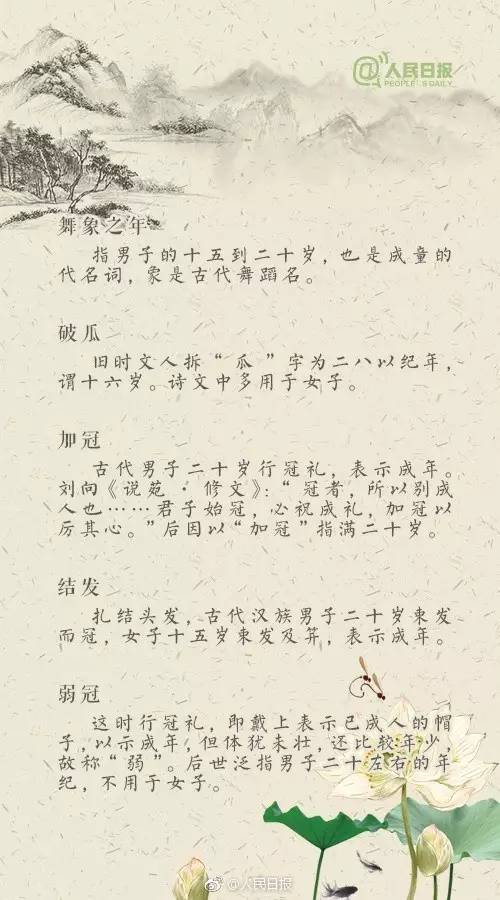 @人民日报
PEOPLE'S DAILY
舞象之年
指男子的十五到二十岁，也是成童的
代名词，象是古代舞蹈名。
破瓜
旧时文人拆“瓜”字为二八以纪年，
谓十六岁。诗文中多用于女子。
加冠
古代男子二十岁行冠礼，表示成年。
刘向《说苑·修文》：“冠者，所以别成
人也……君子始冠，必祝成礼，加冠以
厉其心。”后因以“加冠”指满二十岁。
结发
扎结头发，古代汉族男子二十岁束发
而冠，女子十五岁束发及笄，表示成年。
弱冠
这时行冠礼，即戴上表示已成人的帽
子，以示成年，但体犹未壮，还比较年少，
故称“弱”。后世泛指男子二十左右的年
纪，不用于女子。
@人民日报